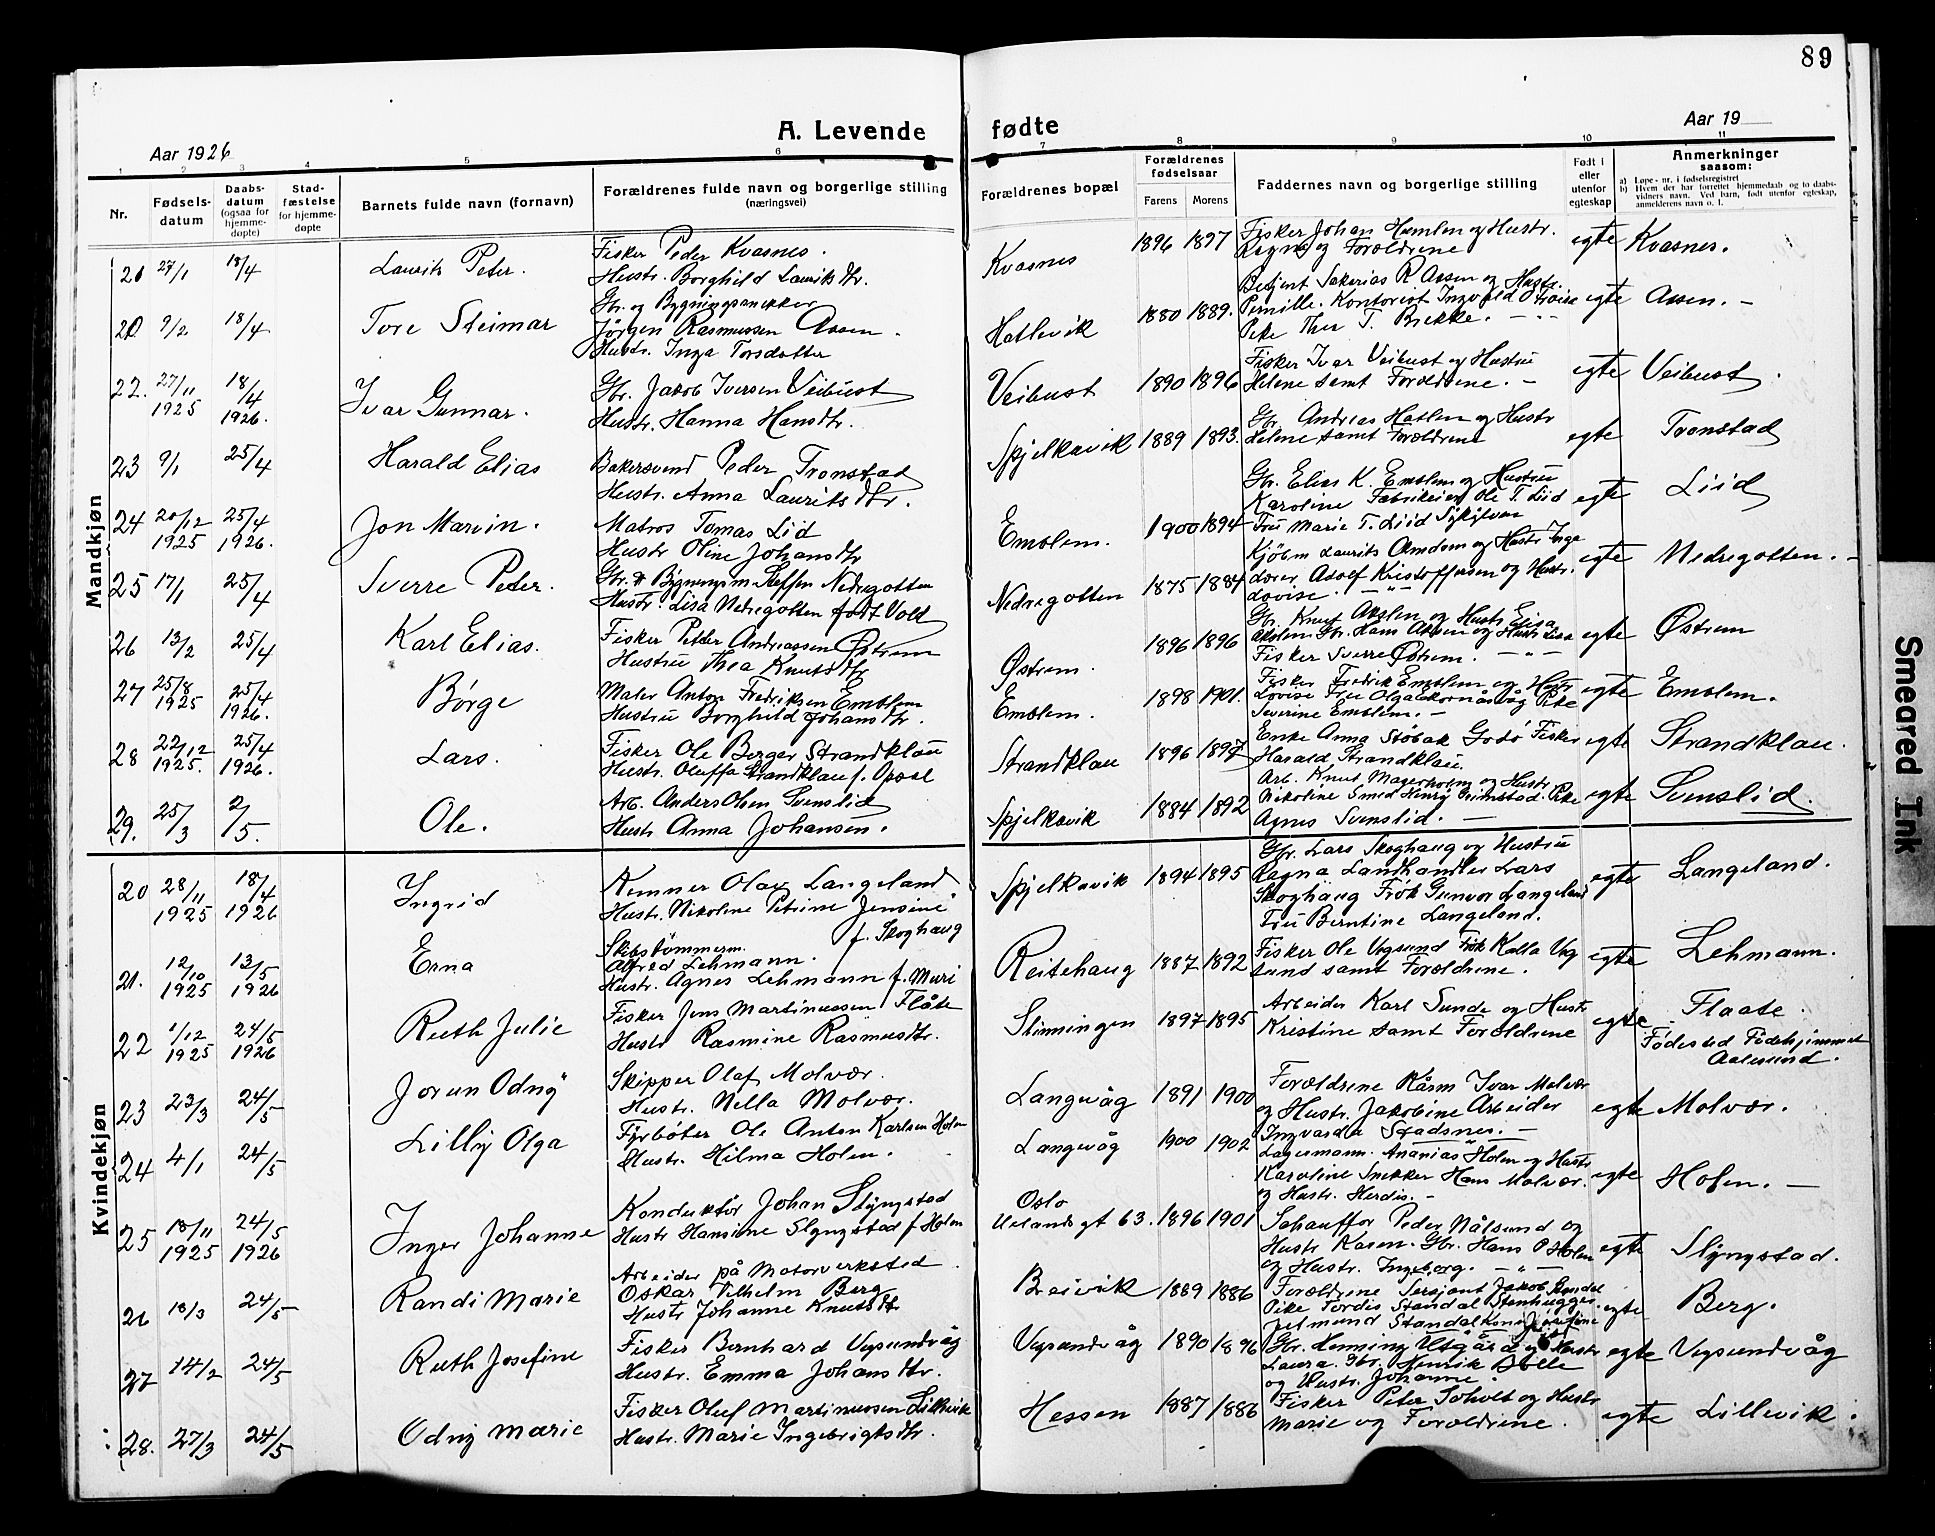 89
A. Levende fødte
Aar 1926
Aar 19
1 2 3 4 5 6 7 8 9 10 11
Nr.
Fødsels-datum
Daabs-datum (ogsaa for hjemme-døpte)
Stad-fæstelse for hjemme-døpte
Barnets fulde navn (fornavn)
Forældrenes fulde navn og borgerlige stilling (næringsvei)
Forældrenes bopæl
Forældrenes fødselsaar
Farens Morens
Faddernes navn og borgerlige stilling
Født i eller utenfor egteskap
Anmerkninger saasom:
a) Løpe-nr. i fødselsregistret
b) Hvem der har forrettet hjemmedaab og to daabs-vidners navn. Ved barn, født utenfor egteskap, anmelderens navn o. l.
Mandkjøn
20 27/1 18/4 Laurits Peter. Fisker Peder Kvasnes. Kvasnes 1896 1897 Fisker Johan Humlen og Hustr. egte Kvasnes.
Hustr. Borghild Lauritsdtr. Ragna og Forældrene
20 9/2 18/4 Tore Steimar Gbr. og Bygningssnekker Hatlevik 1880 1889. Betjent Sakarias R Aasen og Hustr. egte Aasen. -
Jørgen Rasmussen Aasen. Pernille. Kontorist Ingvald O Troise
Hustr. Inga Torsdatter Pike Thea T. Brekke.
22. 27/11 1925 18/4 1926. Ivar Gunnar. Gbr. Jakob Iversen Veibust Veibust 1890 1896 Fisker Ivar Veibust og Hustru egte Veibust.
Hustr. Hanna Hansdtr. Helene samt Forældrene. -
23 9/1 25/4 Harald Elias Bakersvend Peder Tronstad Spjelkavik 1889 1893. Gbr. Andreas Hatlen og Hustr egte Tronstad
Hustr. Anna Lauritsdtr. Helene samt Forældrene
24 20/12 1925 25/4 1926. Jon Marvin. Matros Tomas Liid Emblem. 1900 1894 Gbr. Elias K. Emblem og Hustru egte Liid
Hustr Oline Johansdtr Karoline Fabrikeier Ole T. Liid
Fru Marie T. Liid Sykylven
25 17/1 25/4 Sverre Peder. Gbr. & Bygningsm. Steffen Nedregotten Nedregotten 1875 1884 Kjøbm Laurits Amdam og Hustr Inge egte Nedregotten. -
Hustr. Lisa Nedregotten født Vold dorer Adolf Kristoffersen og Hustr.
Lovise.
26 13/2 25/4 Karl Elias. Fisker Petter Andreassen Østrem Østrem. 1896 1896 Gbr. Knut Akslen og Hustr Elisa egte Østrem
Hustru Thea Knutsdtr Akslen Gbr. Hans Aasen og Hustr Lisa
Fisker Sverre Østrem.
27 25/8 1925 25/4 1926. Børge Maler Anton Fredriksen Emblem Emblem. 1898 1901. Fisker Fredrik Emblem og Hustr egte Emblem.
Hustru Borghild Johansdtr. Lovise Fru Olga Pike
Severine Emblem. -
28 22/12 1925. 25/4 1926. Lars. Fisker Ole Berger Strandklau Strandklau 1896 1897 Enke Anna Støbak Godø Fisker egte Strandklau.
Hustr. Oluffa Strandklau f. Opsal Harald Strandklau.
29. 25/3 2/5. Ole. Arb. Anders Olsen Svenslid Spjelkavik 1884 1892 Arb. Knut Magerholm og Hustr egte Svenslid.
Hustr Anna Johansen. Nikoline Smed Henry Grimstad. Pike
Agnes Svenslid. -
Kvindekjøn
20 28/11 1925 18/4 1926 Ingrid Kemner Olav Langeland Spjelkavik 1894 1895 Gbr. Lars Skoghaug og Hustru egte Langeland.
Hustr. Nikoline Petrine Jensine Ragna Landhandler Lars
f. Skoghaug Skoghaug Frøk Gunvor Langeland
Fru Berntine Langeland.
21. 12/10 1925 13/5 1926 Erna Skibstømmerm. Reitehaug 1887 1892 Fisker Ole Vegsund Frøk Kalla Veg egte Lehmann.
Alfred Lehmann. sund samt Forældrene.
Hustr. Agnes Lehmann f. Muri
22 1/12 1925 24/5 1926 Ruth Julie Fisker Jens Martinussen Flåte Slinningen 1897 1895 Arbeider Karl Sunde og Hustr egte Flaate.
Hustr Rasmine Rasmusdtr. Kristine samt Forældrene Fødested Fødehjemmet
Aalesund.
23 23/3 24/5 Jorun Odny Skipper Olaf Molvær. Langevåg 1891 1900 Forældrene Kåsm Ivar Molvær egte Molvær.
Hustr. Nella Molvær. og Hustr. Jakobine Arbeider
Ingvarda Stadsnes. -
24 4/1 24/5 Lilly Olga Fyrbøter Ole Anton Karlsen Holm Langevåg 1900 1902 Lagermann. Ananias Holen og Hustr egte Holen. -
Hustr. Hilma Holen. Karoline Snekker Hans Molvær.
og Hustr. Herdis. -
25 18/11 1925 24/5 1926 Inger Johanne Konduktør Johan Slyngstad Oslo 1896 1901 Schauffør Peder Nålsund og egte Slyngstad.
Hustr Hansine Slyngstad f. Holen Uelandsgt 63. Hustr Kasen. Gbr. Hans P Holen
og Hustr. Ingeborg.
26 18/3 24/5 Randi Marie Arbeider på Motorverksted Breivik 1889 1886 Forældrene Sersjant Jakob Standal egte Berg.
Oskar Vilhelm Berg Pike Tordis Standal Stenhugger
Hustr Johanne Knutsdtr Jetmund Standal
27 14/2 24/5 Ruth Josefine Fisker Bernhard Vegsundvåg Vegsundvåg 1890 1896 Gbr. Henning Utgård og Hustr egte Vegsundvåg
Hustr. Emma Johansdtr. Laura. Gbr. Henrik Bølle
og Hustr. Johanne.
28. 27/3 24/5 Odny Marie Fisker Oluf Martinussen Lillevik Hessen 1887 1886 Fisker Peter Soholt og Hustr egte Lillevik.
Hustr. Marie Ingebrigtsdtr. Marie og Forældrene.
Smeared Ink